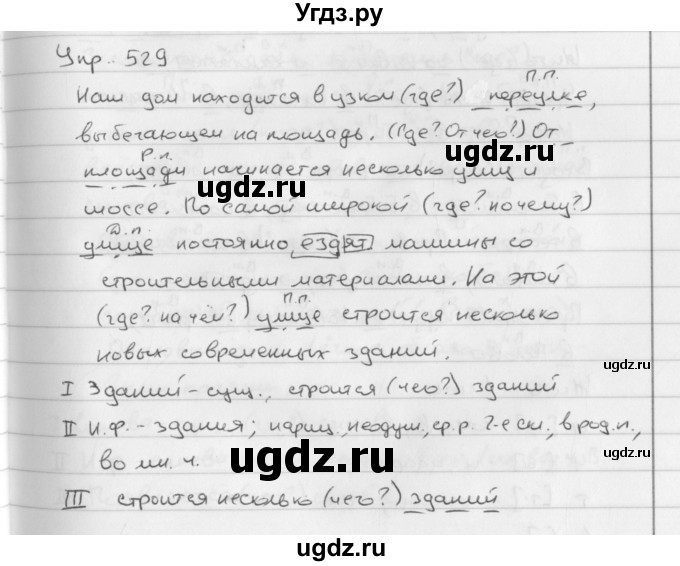 Угдз.ру
Упр. 529
П.п.
Наш дом находится в узком (где?) переулке,
выбегающем на площадь. (Где? От чего?) От
Р.п.
площади начинается несколько улиц и
ugdz.ru ugdz.ru
шоссе. По самой широкой (где? по чему?)
Д.п.
улице постоянно ездят машины со
строительными материалами. На этой
П.п.
(где? на чём?) улице строится несколько
новых современных зданий.
ugdz.ru
I Зданий - сущ., строится (чего?) зданий
II И.ф. - здания; нариц., неодуш., ср.р. 2-е скл., в род.п.,
во мн. ч.
ugdz.ru ugdz.ru
III строится несколько (чего?) зданий
ugdz.ru